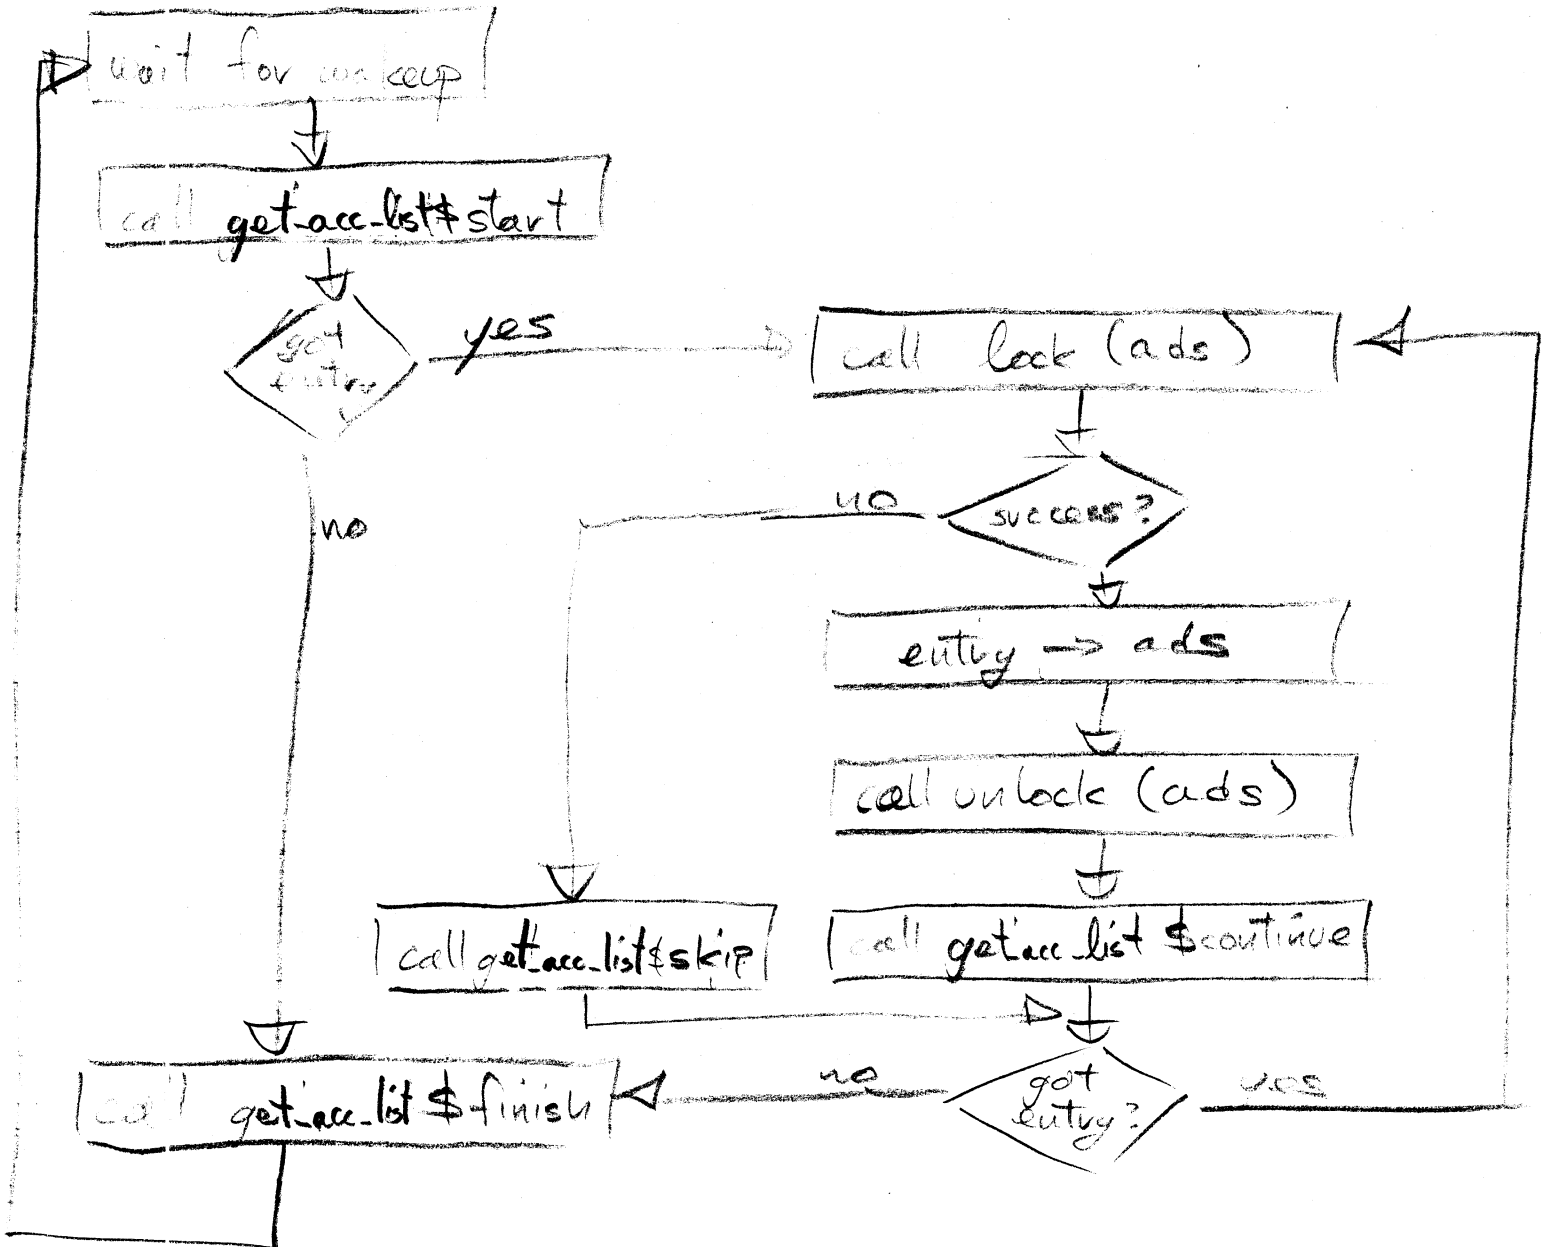 wait for wakeup
call get_acc_list$start
got
entry
yes
call lock (ads)
no
success?
no
entry → ads
call unlock (ads)
call get_acc_list$skip
call get_acc_list $continue
call get_acc_list $finish
no
got
entry?
yes